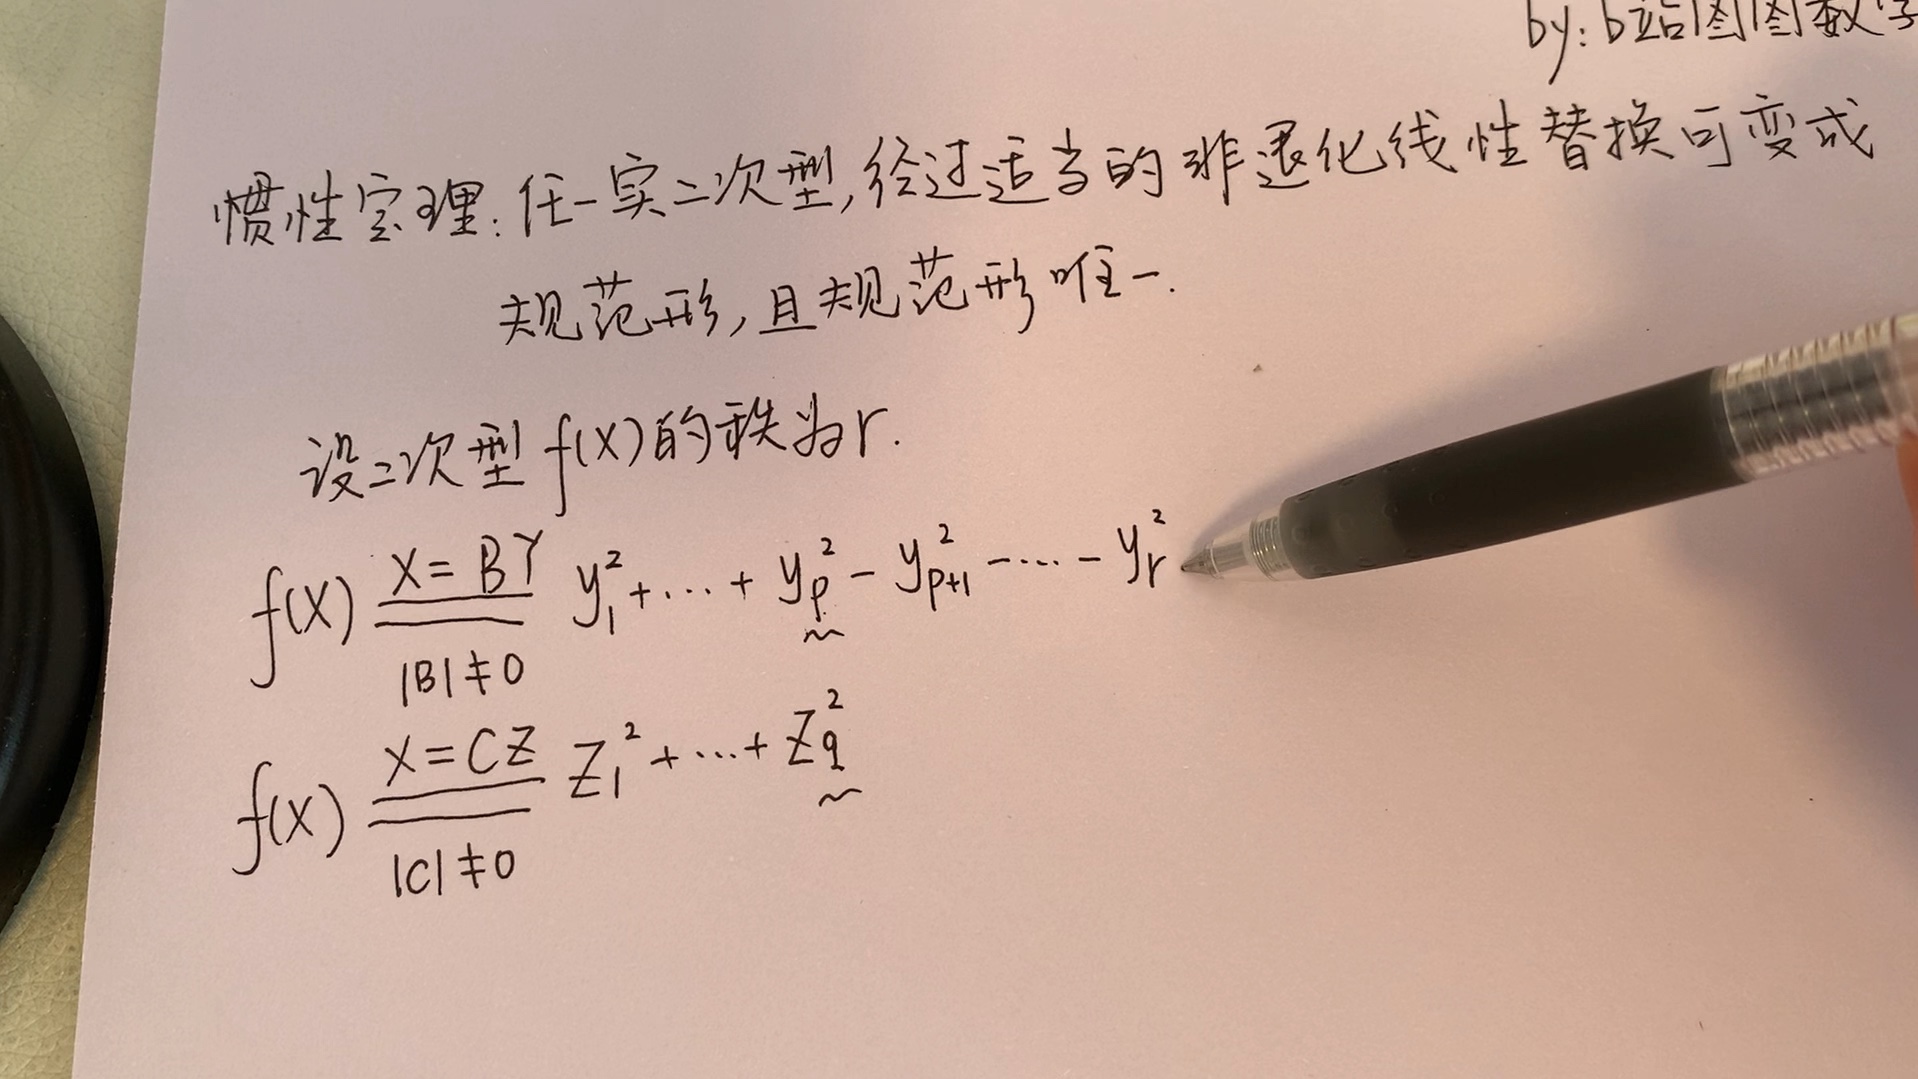 by: b站图图数学
惯性定理: 任一实二次型, 经过适当的非退化线性替换可变成
规范形, 且规范形唯一.
设二次型 f(X) 的秩为 r.
f(X) X=BY y₁² + … + yₚ² − yₚ₊₁² − … − yᵣ²
|B| ≠ 0
f(X) X=CZ Z₁² + … + Z_q²
|C| ≠ 0